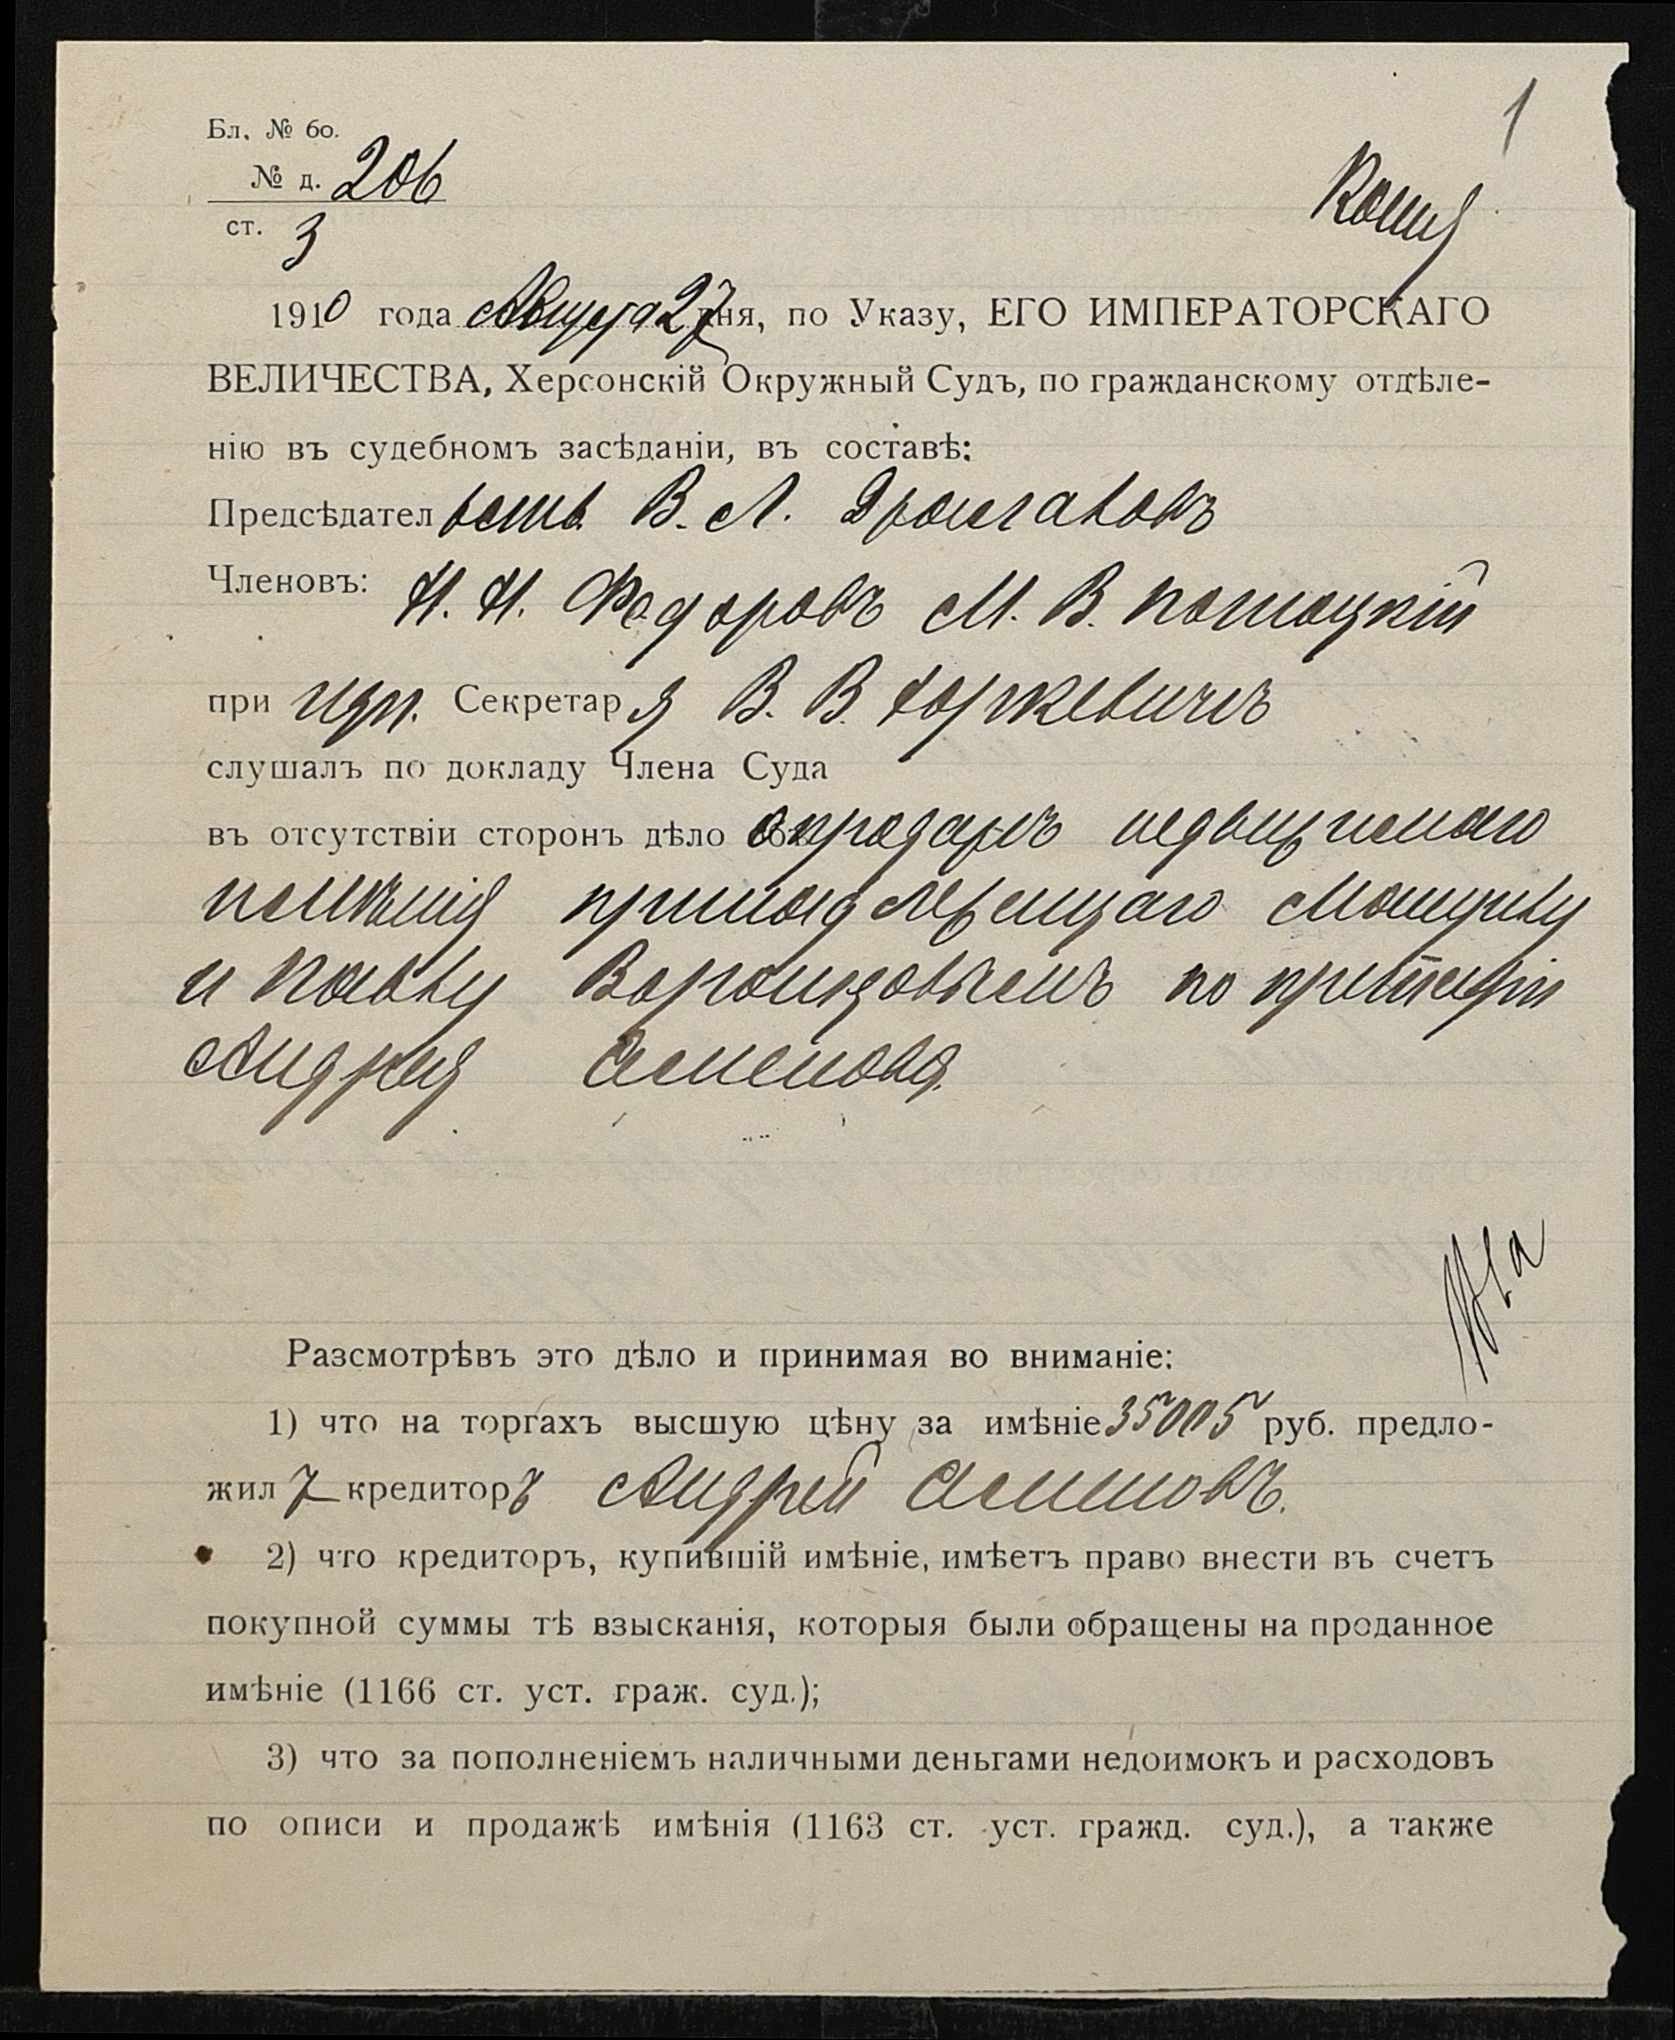 1
Бл. № 60.
№ д. 206
ст. 3
Копия
1910 года Августа 27 дня, по Указу, ЕГО ИМПЕРАТОРСКАГО
ВЕЛИЧЕСТВА, Херсонскій Окружный Судъ, по гражданскому отдѣле-
нію въ судебномъ засѣданіи, въ составѣ:
Предсѣдател В. Л.
Членовъ: Н. Н. Федоровъ М. В. Потоцкій
при исп. Секретаря В. В.
слушалъ по докладу Члена Суда
въ отсутствіи сторонъ дѣло о продажѣ недвижимаго
имѣнія принадлежащаго
и Павлу по претензіи
Андрея Асменова.
Разсмотрѣвъ это дѣло и принимая во вниманіе:
1) что на торгахъ высшую цѣну за имѣніе 35005 руб. предло-
жилъ кредиторъ Андрей Асменовъ.
2) что кредиторъ, купившій имѣніе, имѣетъ право внести въ счетъ
покупной суммы тѣ взысканія, которыя были обращены на проданное
имѣніе (1166 ст. уст. граж. суд.);
3) что за пополненіемъ наличными деньгами недоимокъ и расходовъ
по описи и продажѣ имѣнія (1163 ст. уст. гражд. суд.), а также